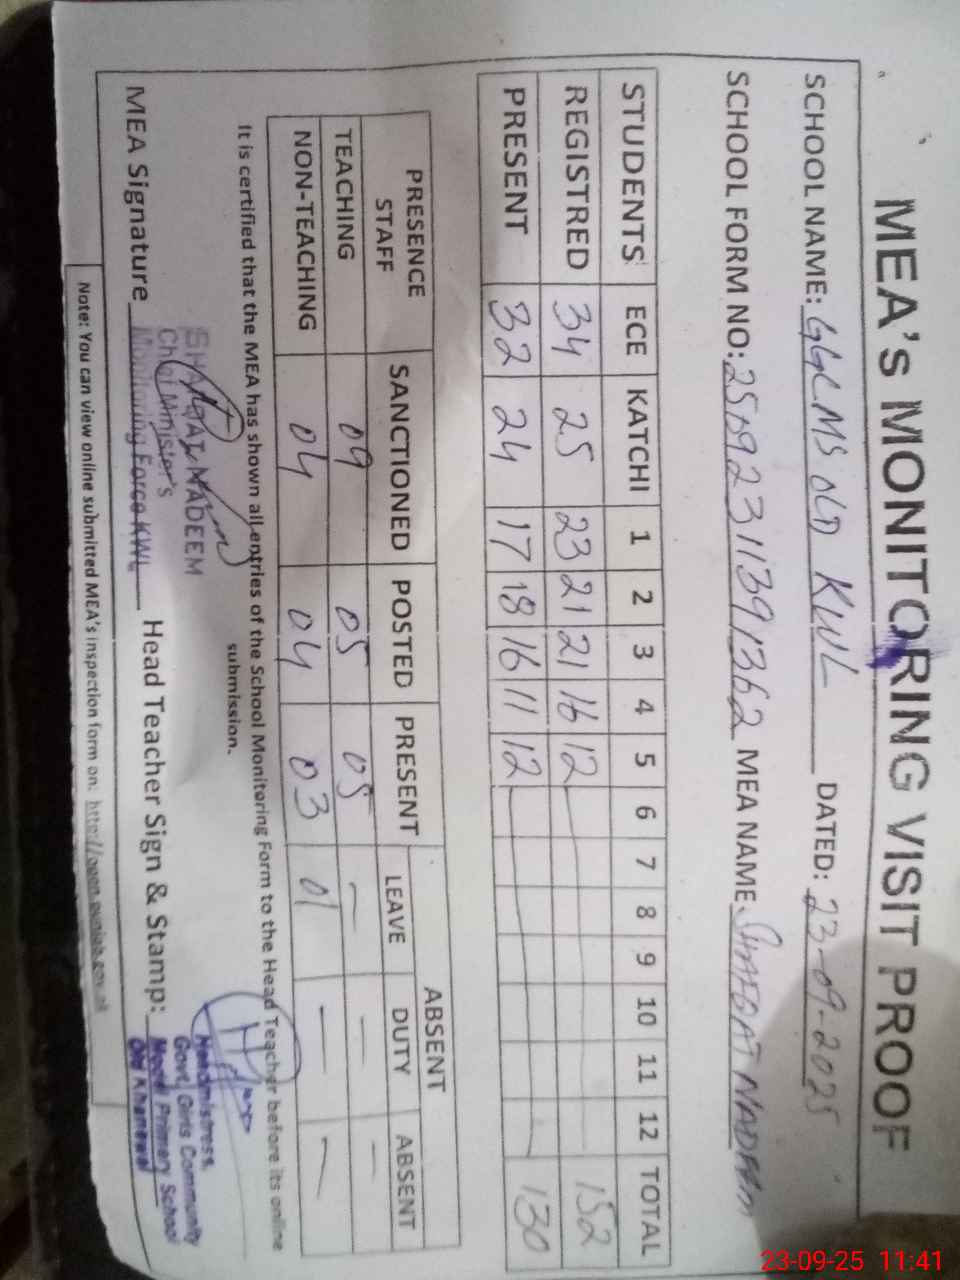 MEA's MONITORING VISIT PROOF
SCHOOL NAME: GGCMS OLD KWL DATED: 23-09-2025
SCHOOL FORM NO: MEA NAME SHAFQAT NADEEM
STUDENTS ECE KATCHI 1 2 3 4 5 6 7 8 9 10 11 12 TOTAL
REGISTRED 34 25 23 21 21 16 12 152
PRESENT 32 24 17 18 16 11 12 130
PRESENCE STAFF SANCTIONED POSTED PRESENT ABSENT
LEAVE DUTY ABSENT
TEACHING 09 05 05 — — —
NON-TEACHING 04 04 03 01 — —
It is certified that the MEA has shown all entries of the School Monitoring Form to the Head Teacher before its online
submission.
SHAFQAT NADEEM
Chief Minister's
Monitoring Force KWL
MEA Signature Head Teacher Sign & Stamp:
Headmistress,
Govt, Girls Community
Model Primary School
Old Khanewal
Note: You can view online submitted MEA's inspection form on: http://open.punjab.gov.pk
23-09-25 11:41